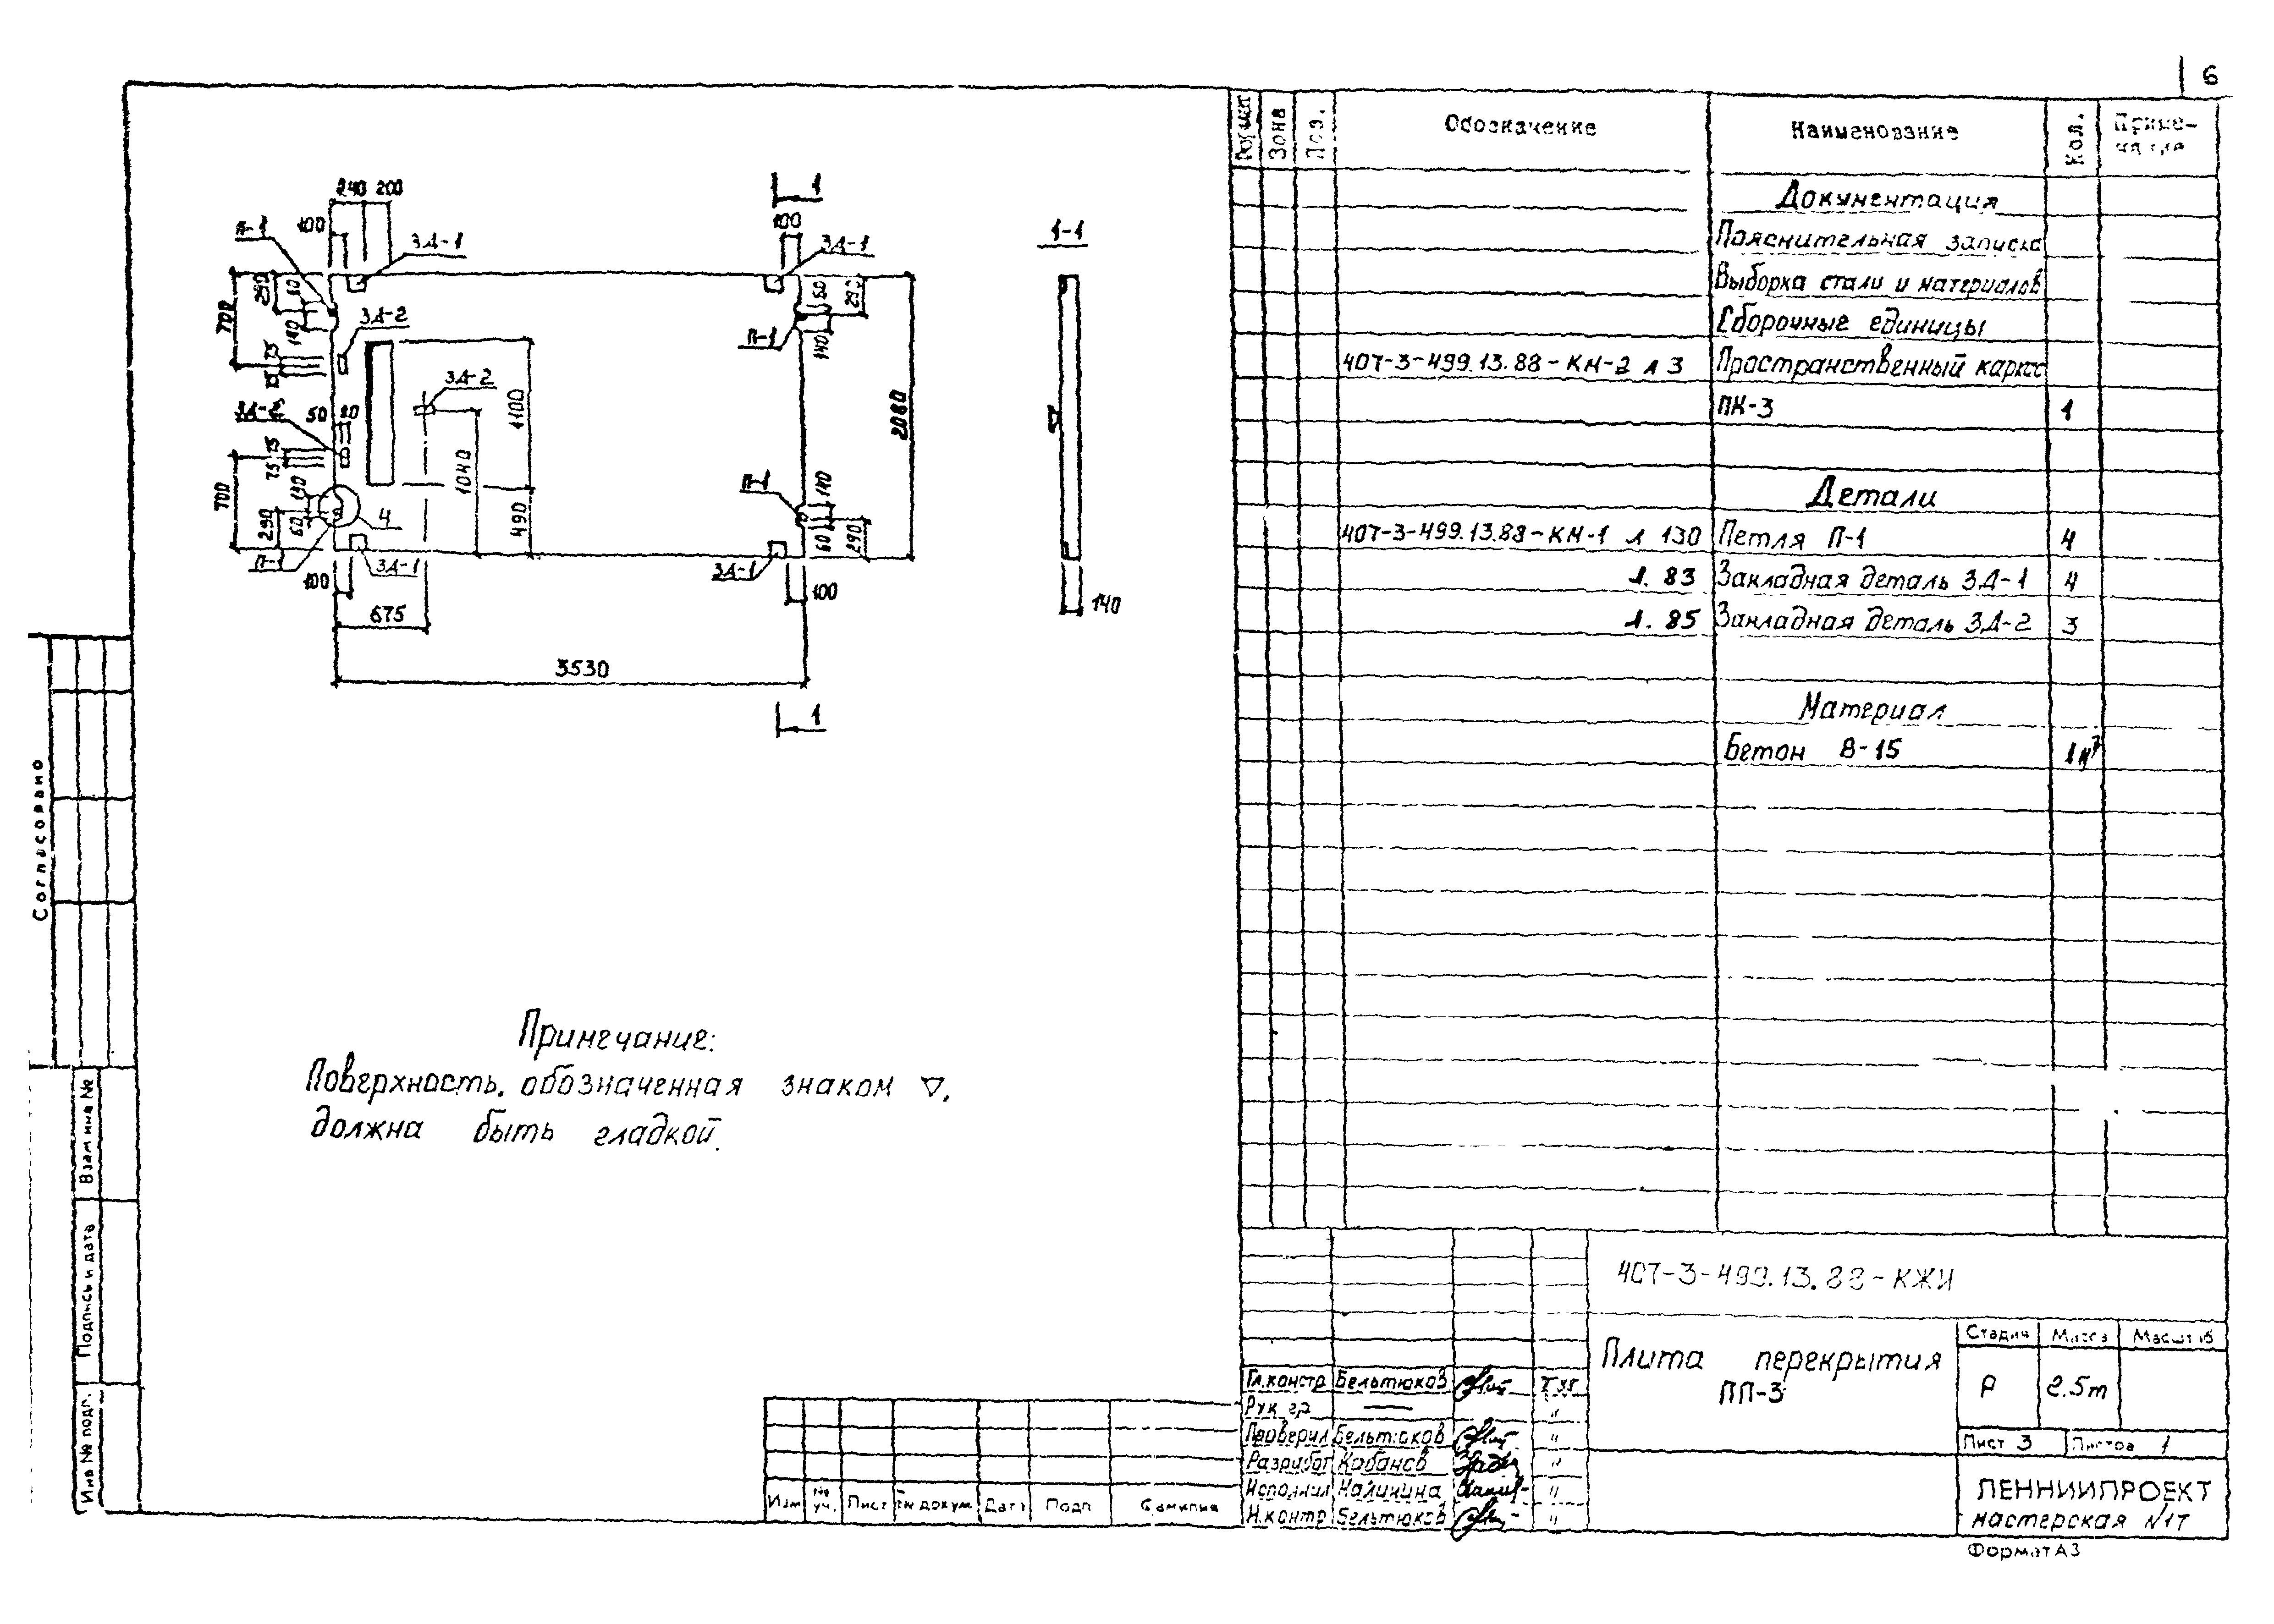 6
240 200
100
П-1
ЗД-1
1
100
ЗД-1
1-1
290
60
700
140
ЗД-2
75
75
П-1
60
290
140
ЗД-2
50 80
ЗД-2
1100
1040
490
2080
75
75
700
140
290
60
4
П-1
ЗД-1
100
675
П-1
140
60
290
ЗД-1
100
140
3530
1
Примечание:
Поверхность, обозначенная знаком ▽,
должна быть гладкой.
Формат Зона Поз. Обозначение Наименование Кол. Приме-
чание
Документация
Пояснительная записка
Выборка стали и материалов
Сборочные единицы
407-3-499.13.88-КИ-2 л 3 Пространственный каркас
ПК-3 1
Детали
407-3-499.13.88-КИ-1 л 130 Петля П-1 4
л. 83 Закладная деталь ЗД-1 4
л. 85 Закладная деталь ЗД-2 3
Материал
Бетон В-15 1м³
407-3-499.13.88-КЖИ
Плита перекрытия
ПП-3
Стадия Масса Масштаб
Р 2.5т
Лист 3 Листов 1
ЛЕННИИПРОЕКТ
мастерская N17
Формат А3
Гл.констр Бельтюков
Рук. гр — "
Проверил Бельтюков "
Разработ Кабанов "
Исполнил Калинина "
Н.контр Бельтюков "
Изм № уч. Лист № докум. Дата Подп Фамилия
Согласовано
Взам инв №
Подпись и дата
Инв № подл.